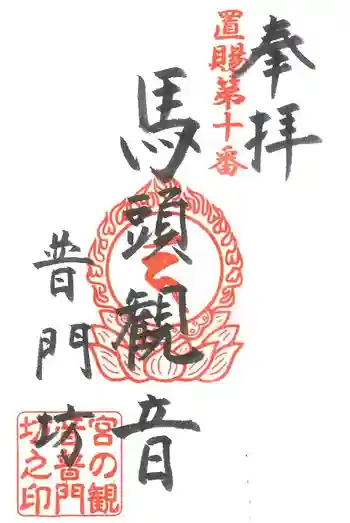 奉拝
置賜第十番
馬頭観音
普門坊
宮の観
音普門
坊之印